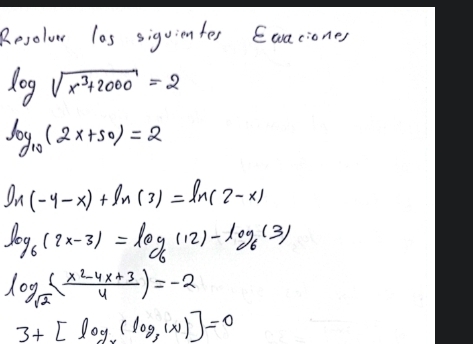 Resolver los siguientes Ecuaciones
log √(x³+2000) = 2
log₁₀(2x+50) = 2
ln(-4-x) + ln(3) = ln(2-x)
log₆(2x-3) = log₆(12) - log₆(3)
log_√2((x²-4x+3)/4) = -2
3 + [log (log₃(x)]=0